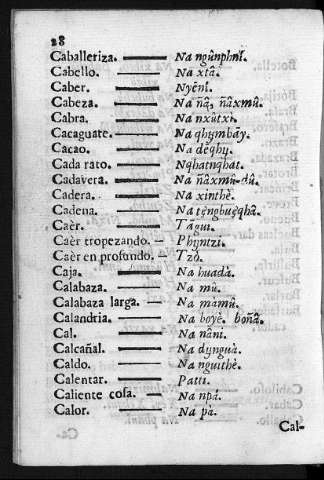 28
Caballeriza. Na ngûnphnî.
Cabello. Na xtâ.
Caber. Nyènî.
Cabeza. Na ñã, ñãxmû.
Cabra. Na nxûtxi.
Cacaguate. Na qhymbãy.
Cacao. Na dèqhy.
Cada rato. Nqhatnqhat.
Cadavera. Na ñãxmu-dû.
Cadera. Na xinthè.
Cadena. Na tengbuęqhã.
Caèr. Tãgui.
Caèr tropezando. Phyntzi.
Caèr en profundo. Tzo.
Caja. Na huadà.
Calabaza. Na mû.
Calabaza larga. Na mamû.
Calandria. Na boyè. boñã.
Cal. Na nâni.
Calcañal. Na dynguà.
Caldo. Na nguithè.
Calentar. Patti.
Caliente cosa. Na npá.
Calor. Na pa.
Cal-